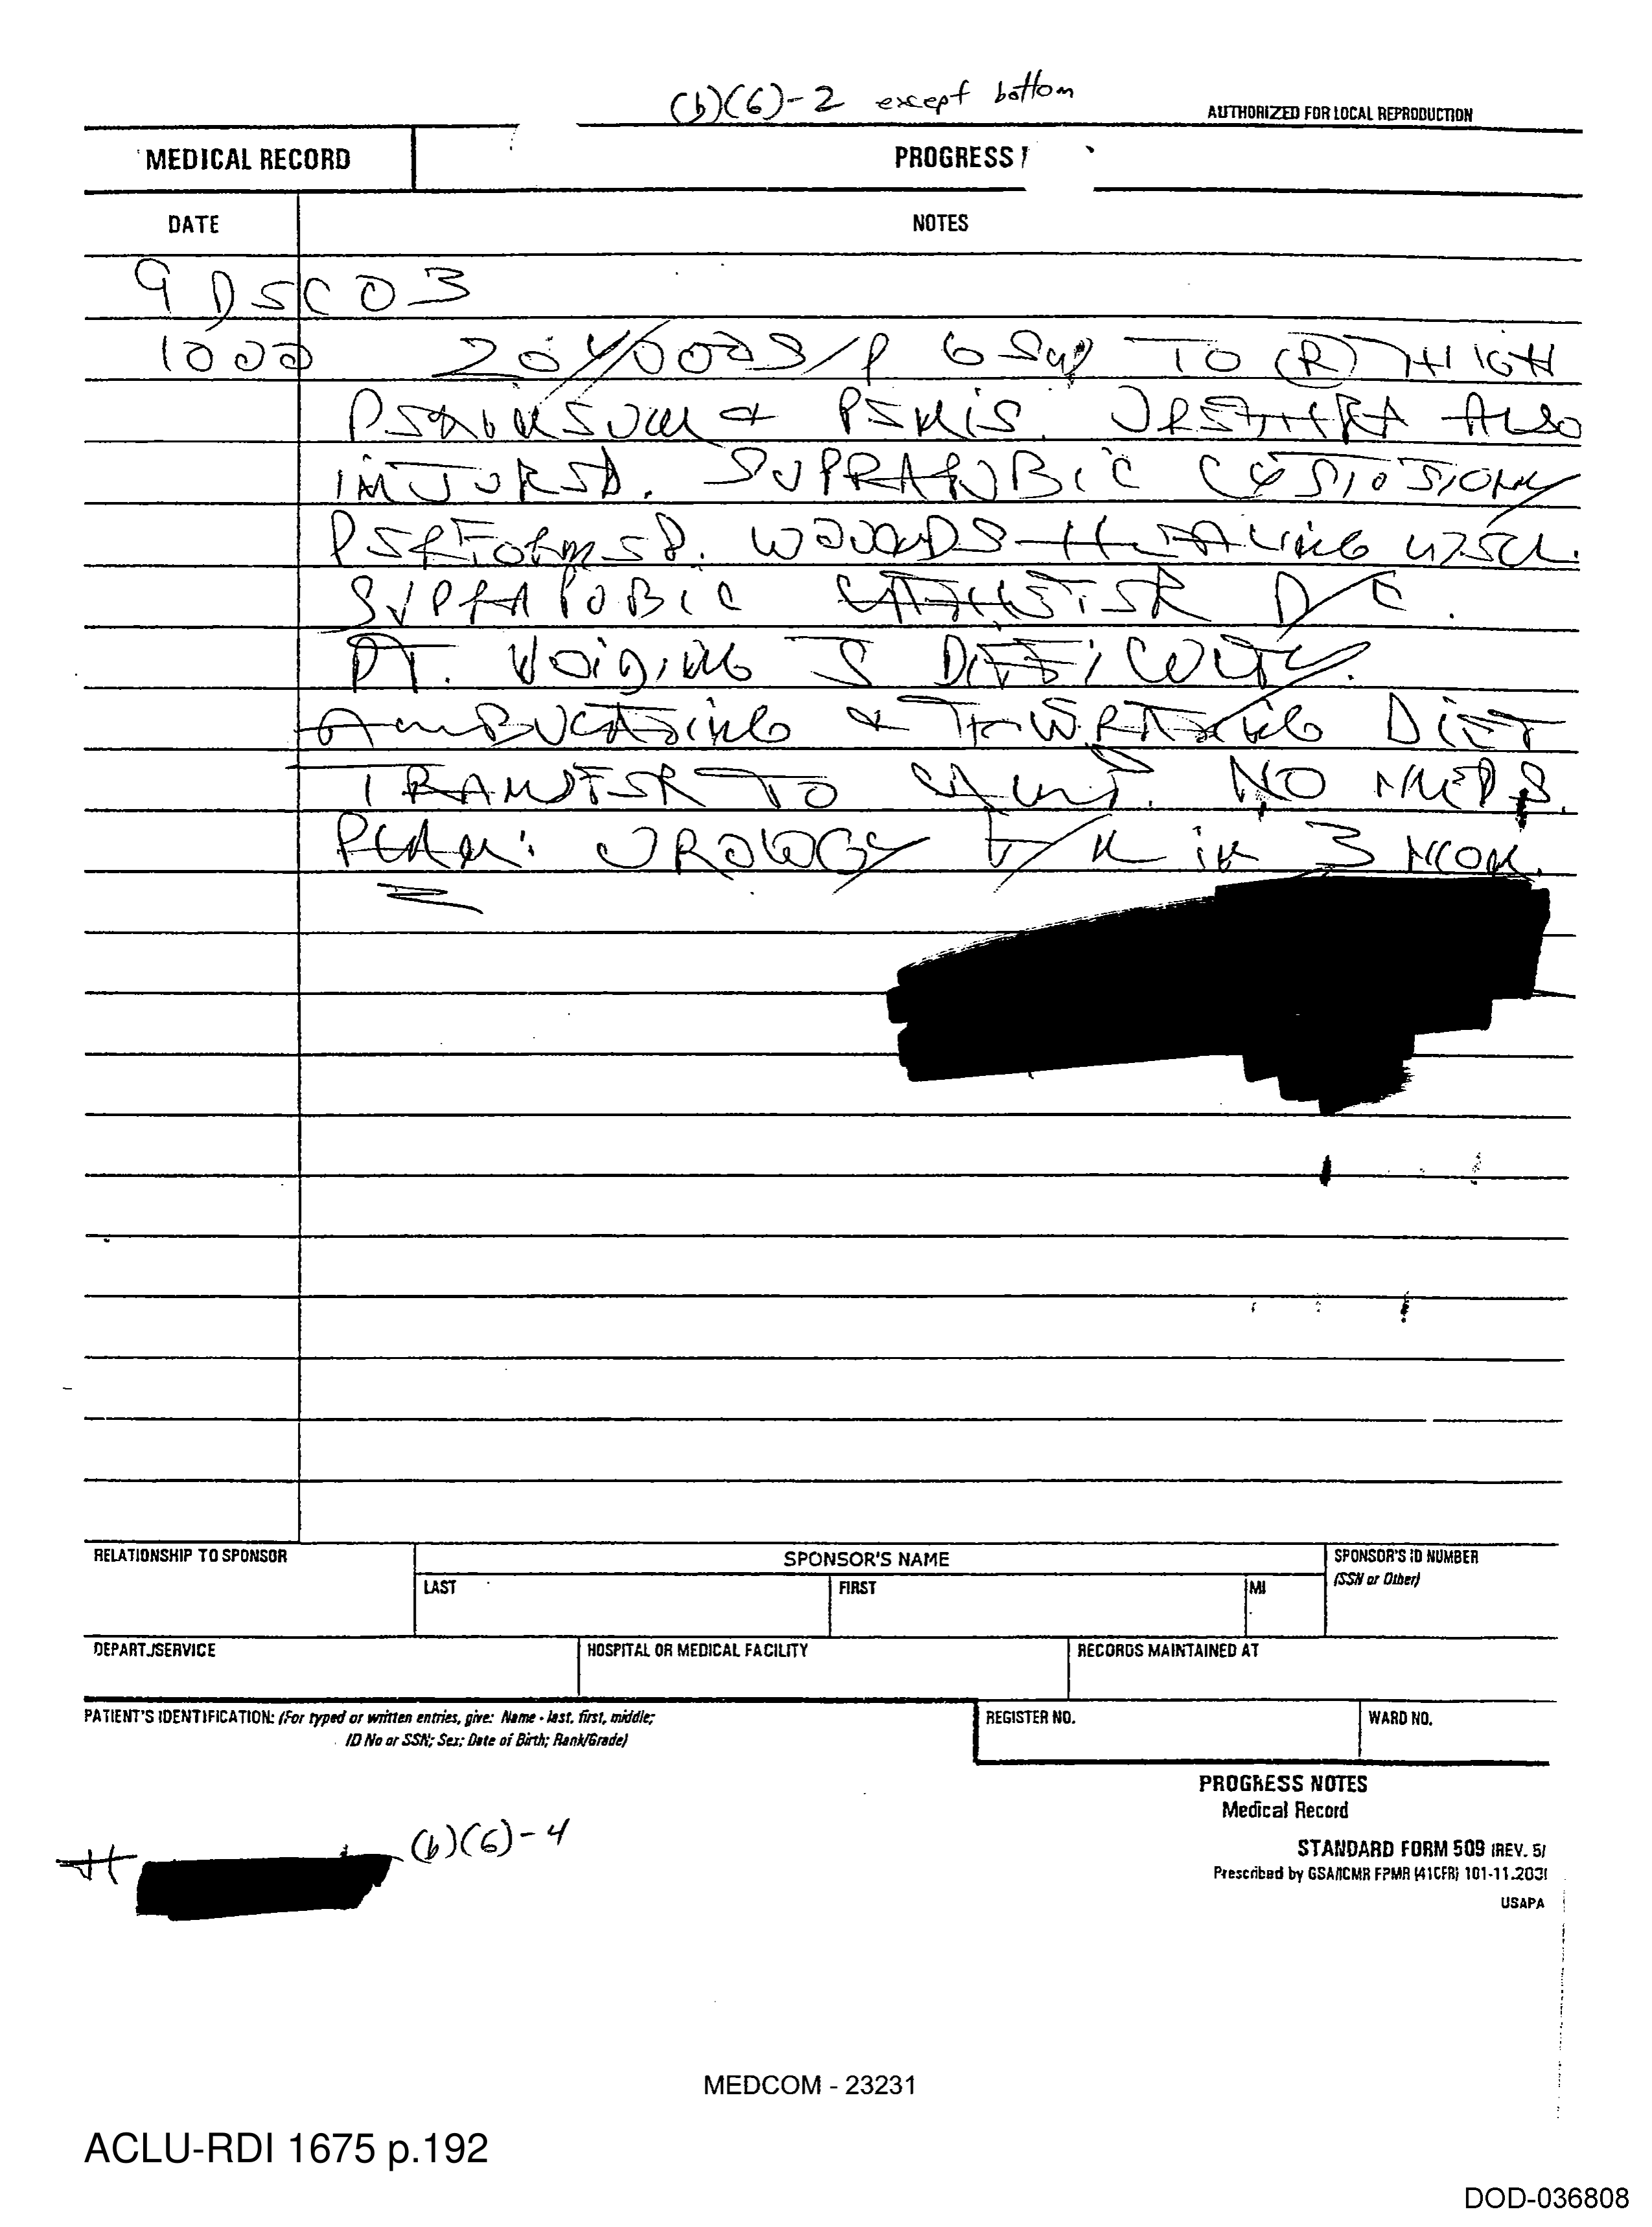 (b)(6)-2 except bottom
AUTHORIZED FOR LOCAL REPRODUCTION
MEDICAL RECORD
PROGRESS
DATE
NOTES
9 DEC 03
1000 20 y/o S/P GSW TO (R) THIGH
PERINEUM & PENIS. URETHRA ALSO
INJURED. SUPRAPUBIC CYSTOSTOMY
PERFORMED. WOUNDS HEALING WELL.
SUPRAPUBIC CATHETER D/C.
PT. VOIDING S DIFFICULTY.
AMBULATING & TOLERATING DIET
TRANSFER TO NO MEDS.
PLAN: UROLOGY F/U IN 3 MON.
RELATIONSHIP TO SPONSOR
SPONSOR'S NAME
SPONSOR'S ID NUMBER
(SSN or Other)
LAST
FIRST
MI
DEPART./SERVICE
HOSPITAL OR MEDICAL FACILITY
RECORDS MAINTAINED AT
PATIENT'S IDENTIFICATION: (For typed or written entries, give: Name - last, first, middle;
ID No or SSN; Sex; Date of Birth; Rank/Grade)
REGISTER NO.
WARD NO.
PROGRESS NOTES
Medical Record
STANDARD FORM 509 (REV. 5/
Prescribed by GSA/ICMR FPMR (41CFR) 101-11.203(
USAPA
# (b)(6)-4
MEDCOM - 23231
ACLU-RDI 1675 p.192
DOD-036808